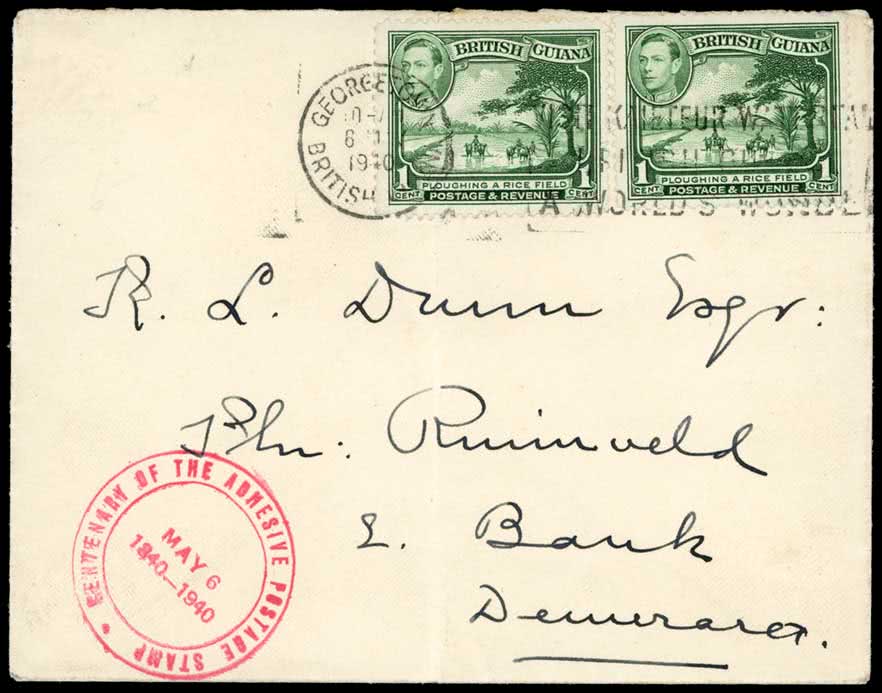 BRITISH GUIANA
1 CENT
PLOUGHING A RICE FIELD
POSTAGE & REVENUE
1 CENT
BRITISH GUIANA
1 CENT
PLOUGHING A RICE FIELD
POSTAGE & REVENUE
1 CENT
GEORGETOWN
6
1940
BRITISH
KAIETEUR
A WORLD'S
R. L. Dunn Esqr:
Pln: Ruimveld
E. Bank
Demerara.
CENTENARY OF THE ADHESIVE POSTAGE STAMP
MAY 6
1840–1940